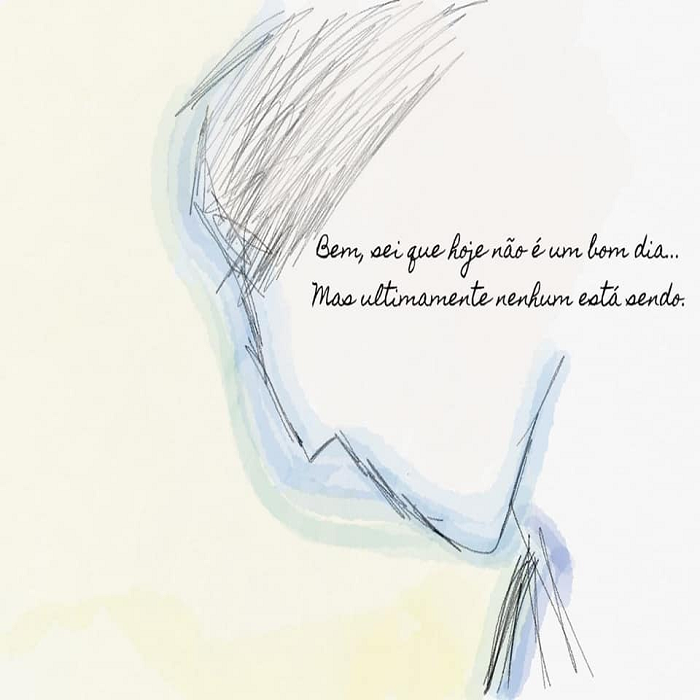 Bem, sei que hoje não é um bom dia...
Mas ultimamente nenhum está sendo.